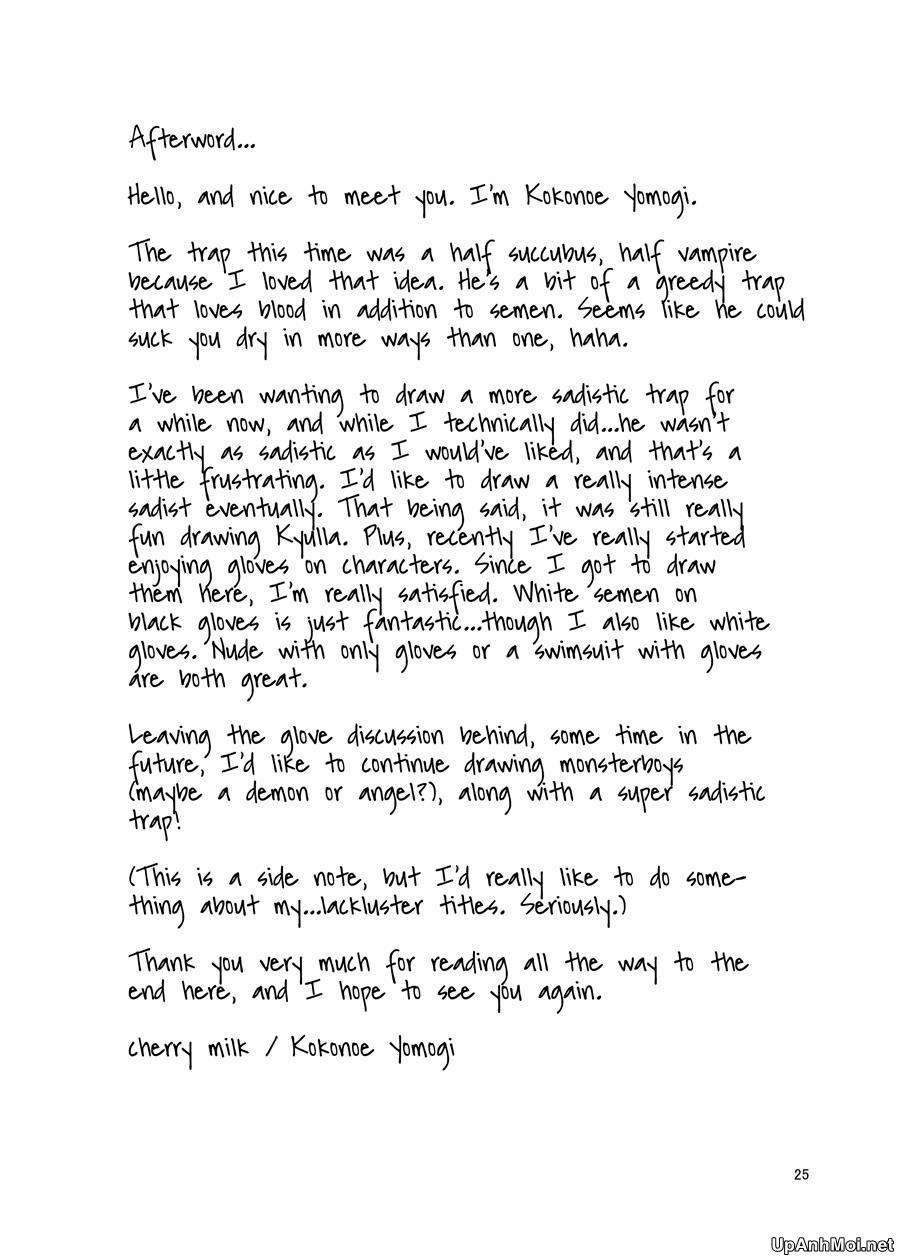 Afterword...
Hello, and nice to meet you. I'm Kokonoe Yomogi.
The trap this time was a half succubus, half vampire
because I loved that idea. He's a bit of a greedy trap
that loves blood in addition to semen. Seems like he could
suck you dry in more ways than one, haha.
I've been wanting to draw a more sadistic trap for
a while now, and while I technically did...he wasn't
exactly as sadistic as I would've liked, and that's a
little frustrating. I'd like to draw a really intense
sadist eventually. That being said, it was still really
fun drawing Kyulla. Plus, recently I've really started
enjoying gloves on characters. Since I got to draw
them here, I'm really satisfied. White semen on
black gloves is just fantastic...though I also like white
gloves. Nude with only gloves or a swimsuit with gloves
are both great.
Leaving the glove discussion behind, some time in the
future, I'd like to continue drawing monsterboys
(maybe a demon or angel?), along with a super sadistic
trap!
(This is a side note, but I'd really like to do some-
thing about my...lackluster titles. Seriously.)
Thank you very much for reading all the way to the
end here, and I hope to see you again.
cherry milk / Kokonoe Yomogi
25
UpAnhMoi.net